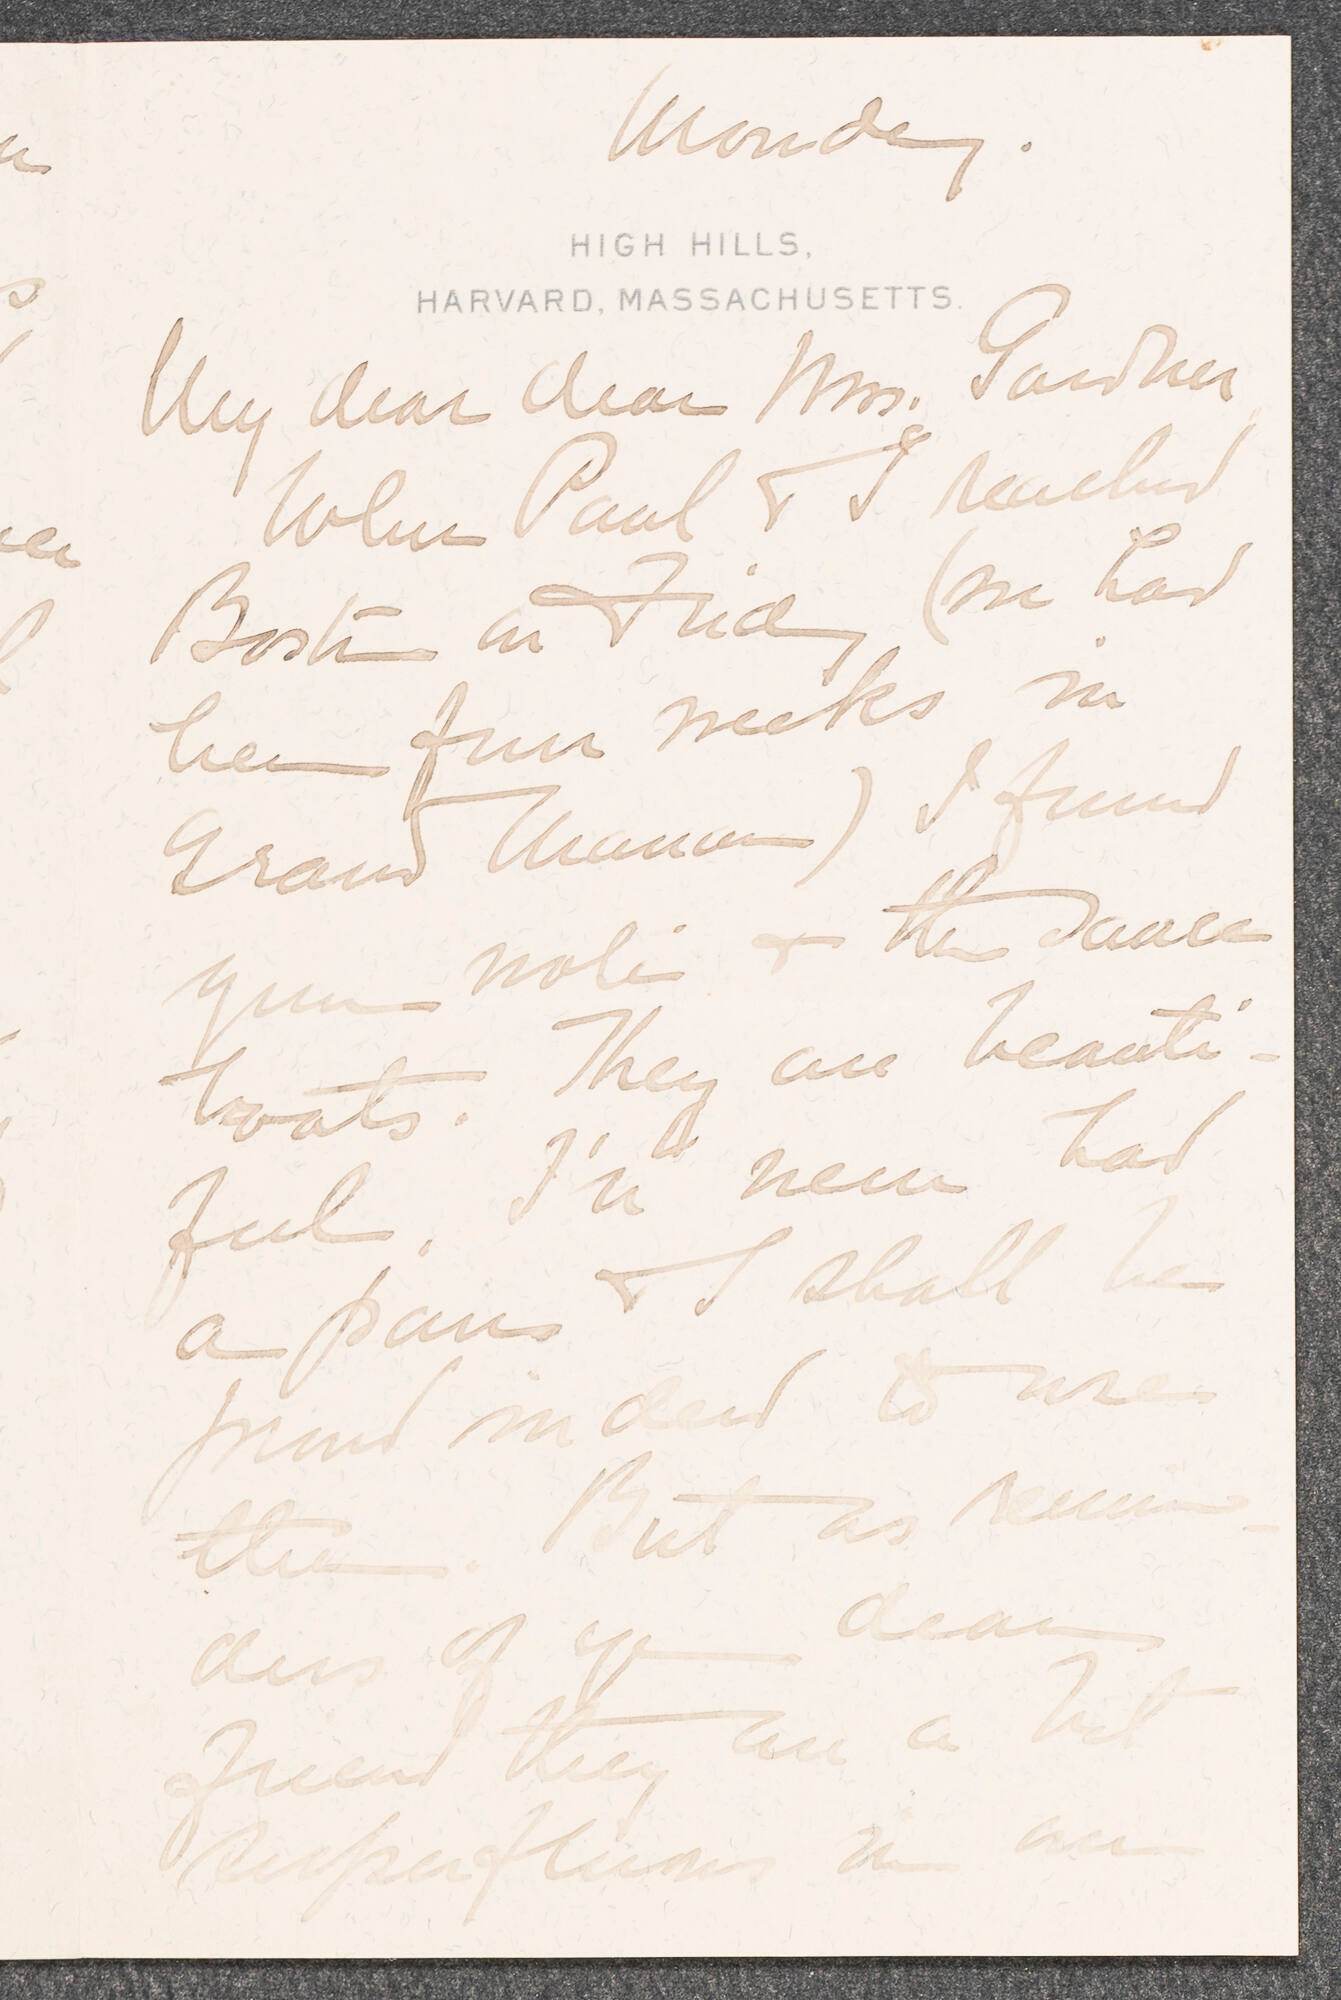 Monday.
HIGH HILLS,
HARVARD, MASSACHUSETTS.
My dear dear Mrs. Gardner,
When Paul & I reached
Boston on Friday (we had
been four weeks in
Grand Manan) I found
your note & the sauce
boats. They are beauti-
ful. I've never had
a pair & I shall be
proud indeed to use
them. But as remin-
ders of you dear
friend they are a bit
superfluous in our